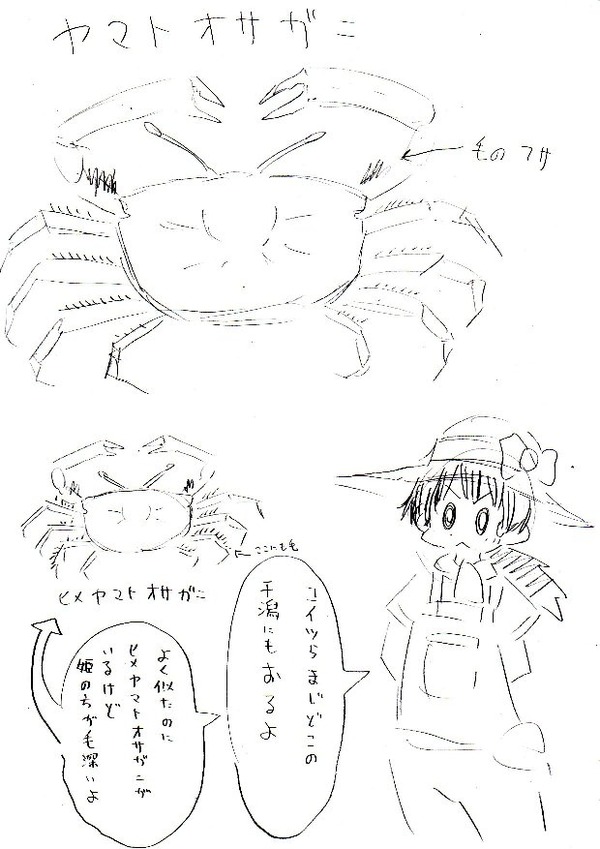 ヤマトオサガニ
毛のフサ
ここにも毛
ヒメヤマトオサガニ
コイツらまじどこの
干潟にもおるよ
よく似たのに
ヒメヤマトオサガニが
いるけど
姫のちが毛深いよ